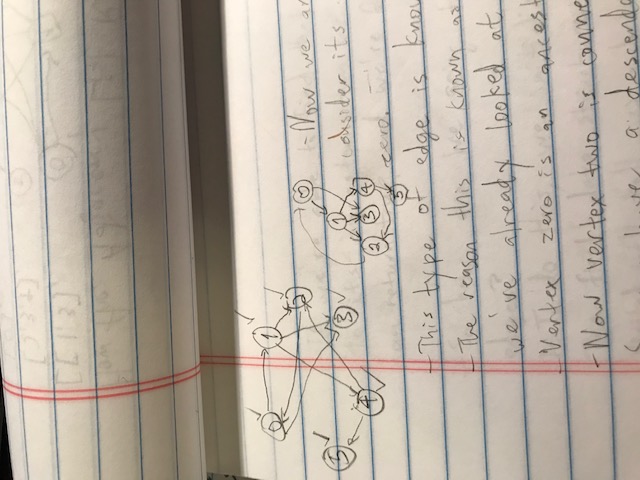 [ 2, 3, 4 ]
[ 1, 3 ]
0
1
2
5
3
4
0
-Now we ar
1
consider its
2 3 4
zero.
5
-This type of edge is know
-The reason this is known as
we've already looked at
-Vertex zero is an ancest
-Now vertex two is conne
have a descenda